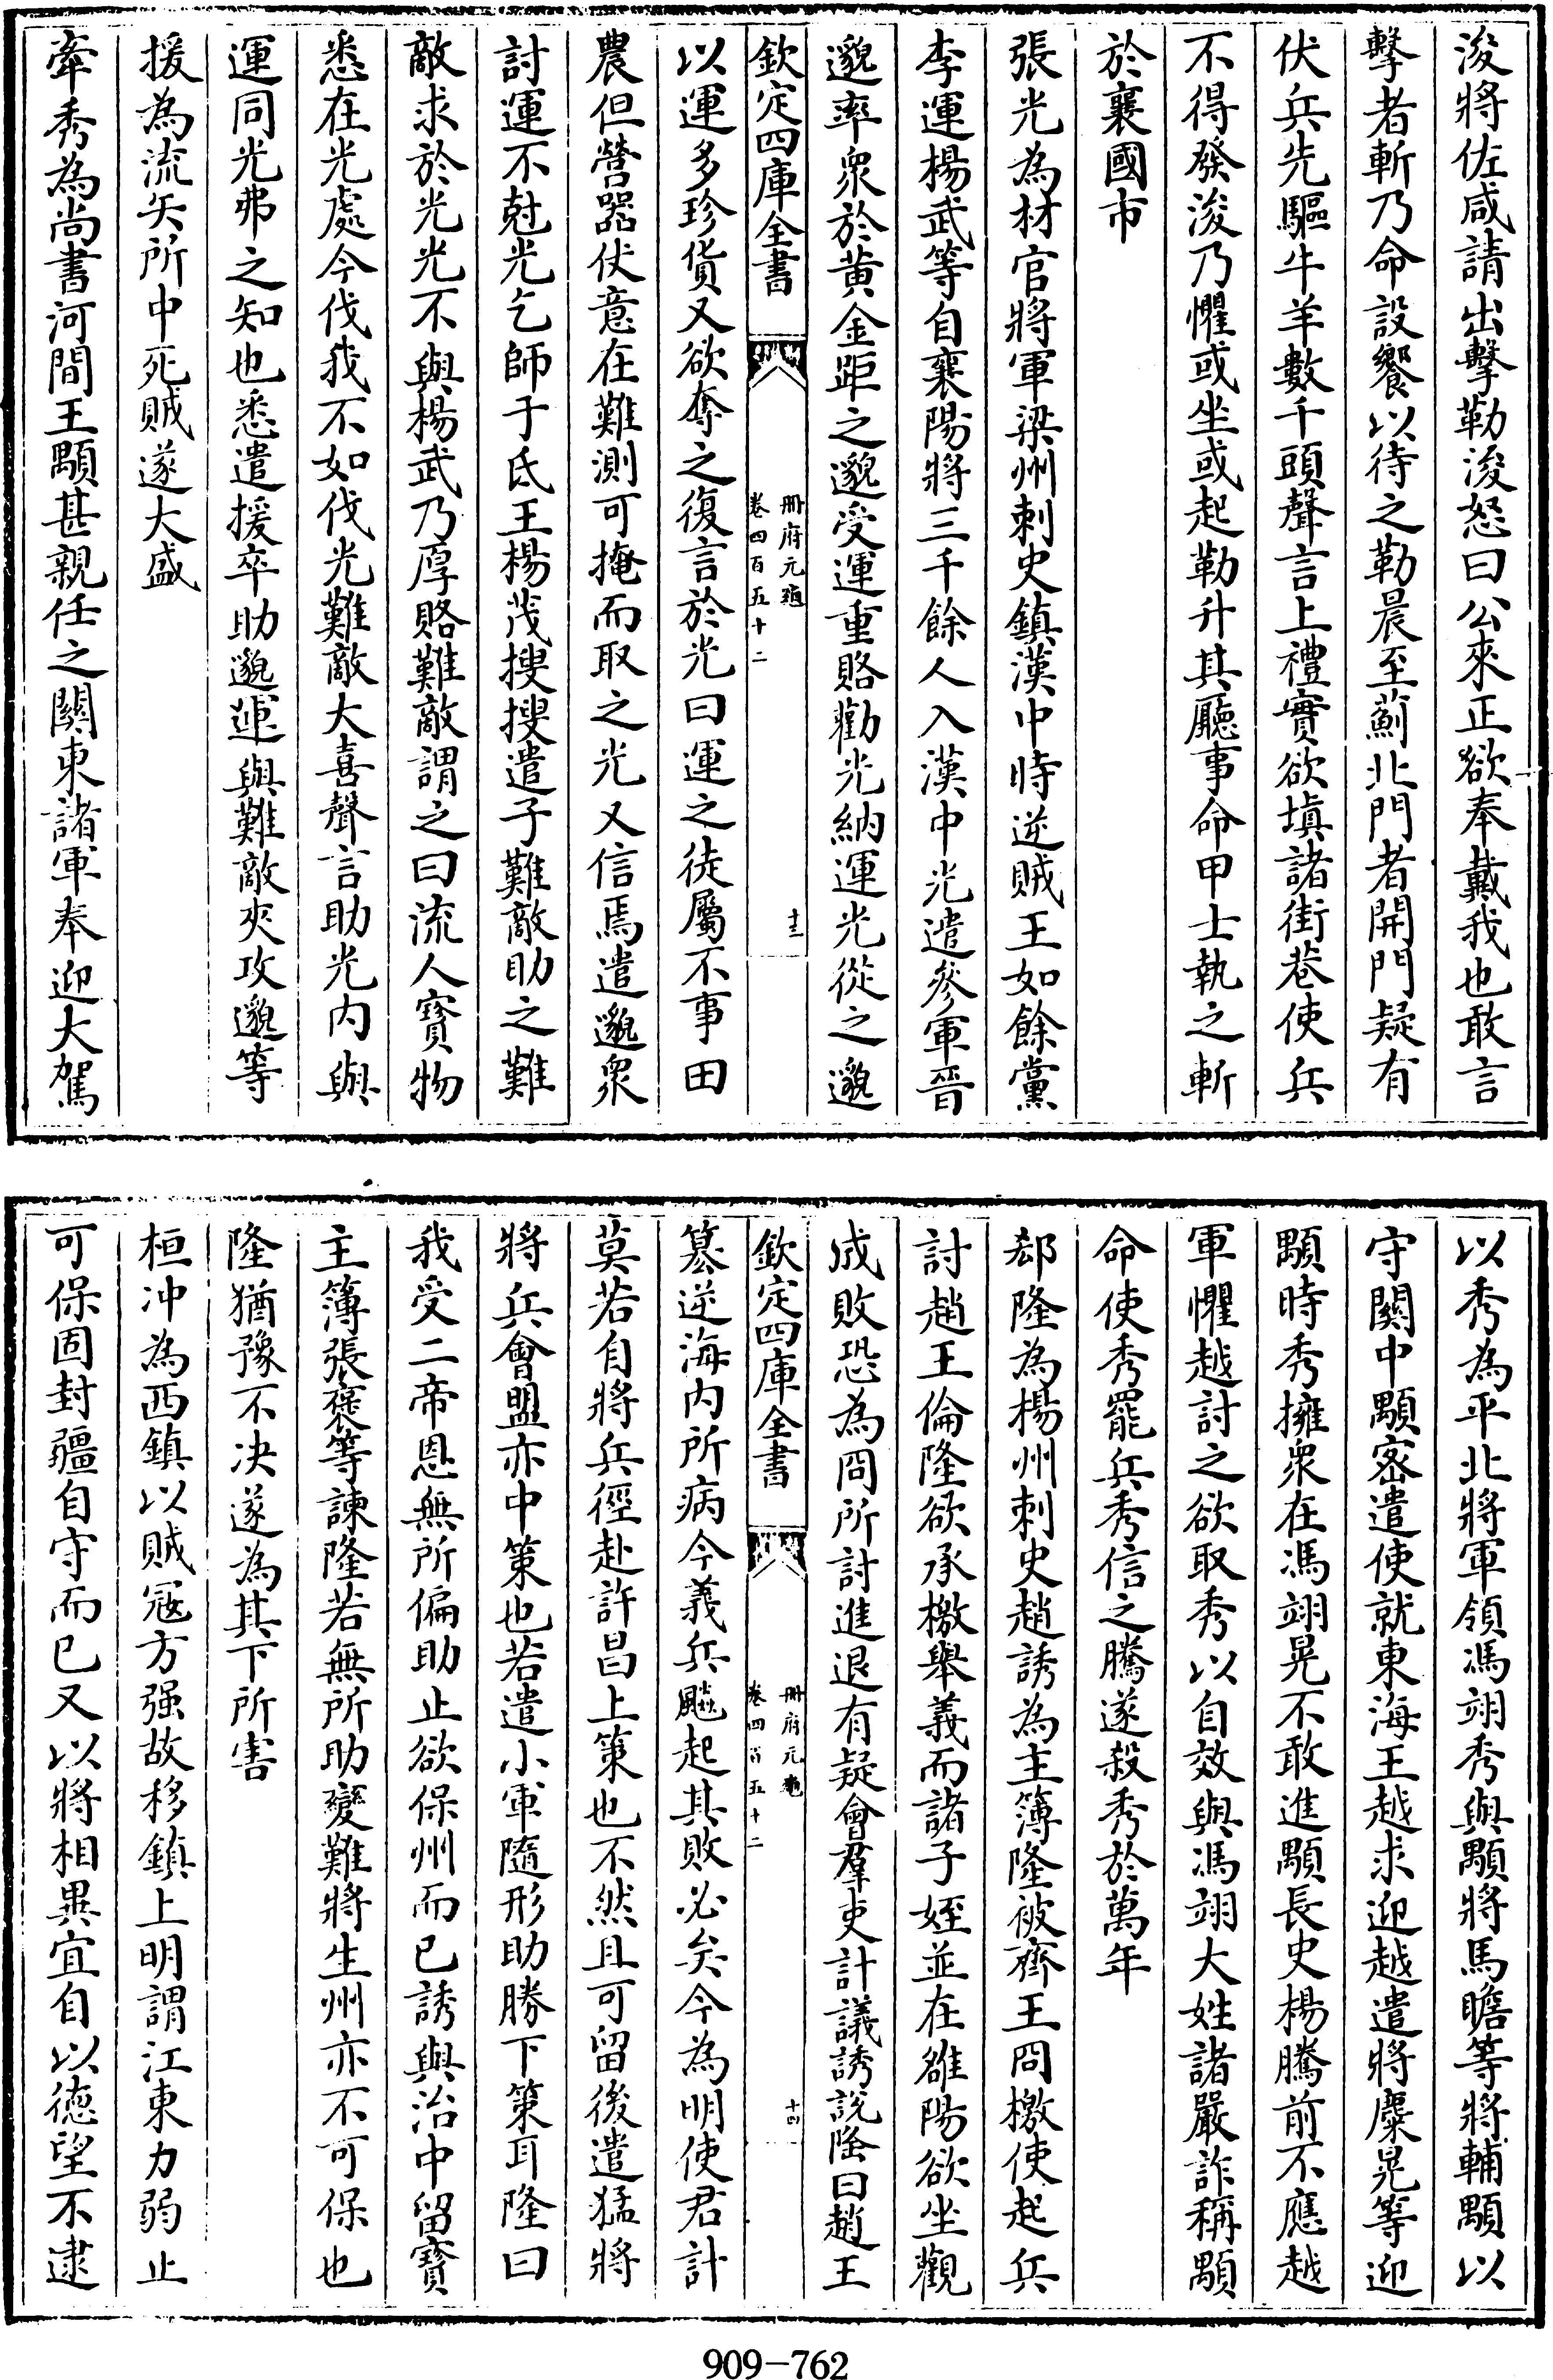 浚將佐咸請出擊勒浚怒曰公來正欲奉戴我也敢言
擊者斬乃命設饗以待之勒晨至薊北門者開門疑有
伏兵先驅牛羊數千頭聲言上禮實欲填諸街巷使兵
不得發浚乃懼或坐或起勒升其廳事命甲士執之斬
於襄國市
張光為材官將軍梁州刺史鎮漢中時逆賊王如餘黨
李運楊武等自襄陽將三千餘人入漢中光遣參軍晉
邈率衆於黄金距之邈受運重賂勸光納運光從之邈
欽定四庫全書
冊府元龜
卷四百五十二
十三
以運多珍貨又欲奪之復言於光曰運之徒屬不事田
農但營器仗意在難測可掩而取之光又信焉遣邈衆
討運不尅光乞師于氐王楊茂搜搜遣子難敵助之難
敵求於光光不與楊武乃厚賂難敵謂之曰流人寳物
悉在光處今伐我不如伐光難敵大喜聲言助光内與
運同光弗之知也悉遣援卒助邈運與難敵夾攻邈等
援為流矢所中死賊遂大盛
牽秀為尚書河間王顒甚親任之關東諸軍奉迎大駕
以秀為平北將軍領馮翊秀與顒將馬瞻等將輔顒以
守關中顒密遣使就東海王越求迎越遣將麋晃等迎
顒時秀擁衆在馮翊晃不敢進顒長史楊騰前不應越
軍懼越討之欲取秀以自效與馮翊大姓諸嚴詐稱顒
命使秀罷兵秀信之騰遂殺秀於萬年
郄隆為楊州刺史趙誘為主簿隆被齊王冏檄使起兵
討趙王倫隆欲承檄舉義而諸子姪並在雒陽欲坐觀
成敗恐為冏所討進退有疑會羣吏計議誘說隆曰趙王
欽定四庫全書
冊府元龜
卷四百五十二
十四
簒逆海内所病今義兵飈起其敗必矣今為明使君計
莫若自將兵徑赴許昌上策也不然且可留後遣猛將
將兵會盟亦中策也若遣小軍隨形助勝下策耳隆曰
我受二帝恩無所偏助止欲保州而已誘與治中留寳
主簿張褒等諫隆若無所助變難將生州亦不可保也
隆猶豫不决遂為其下所害
桓冲為西鎮以賊寇方强故移鎮上明謂江東力弱止
可保固封疆自守而已又以將相異宜自以徳望不逮
909-762